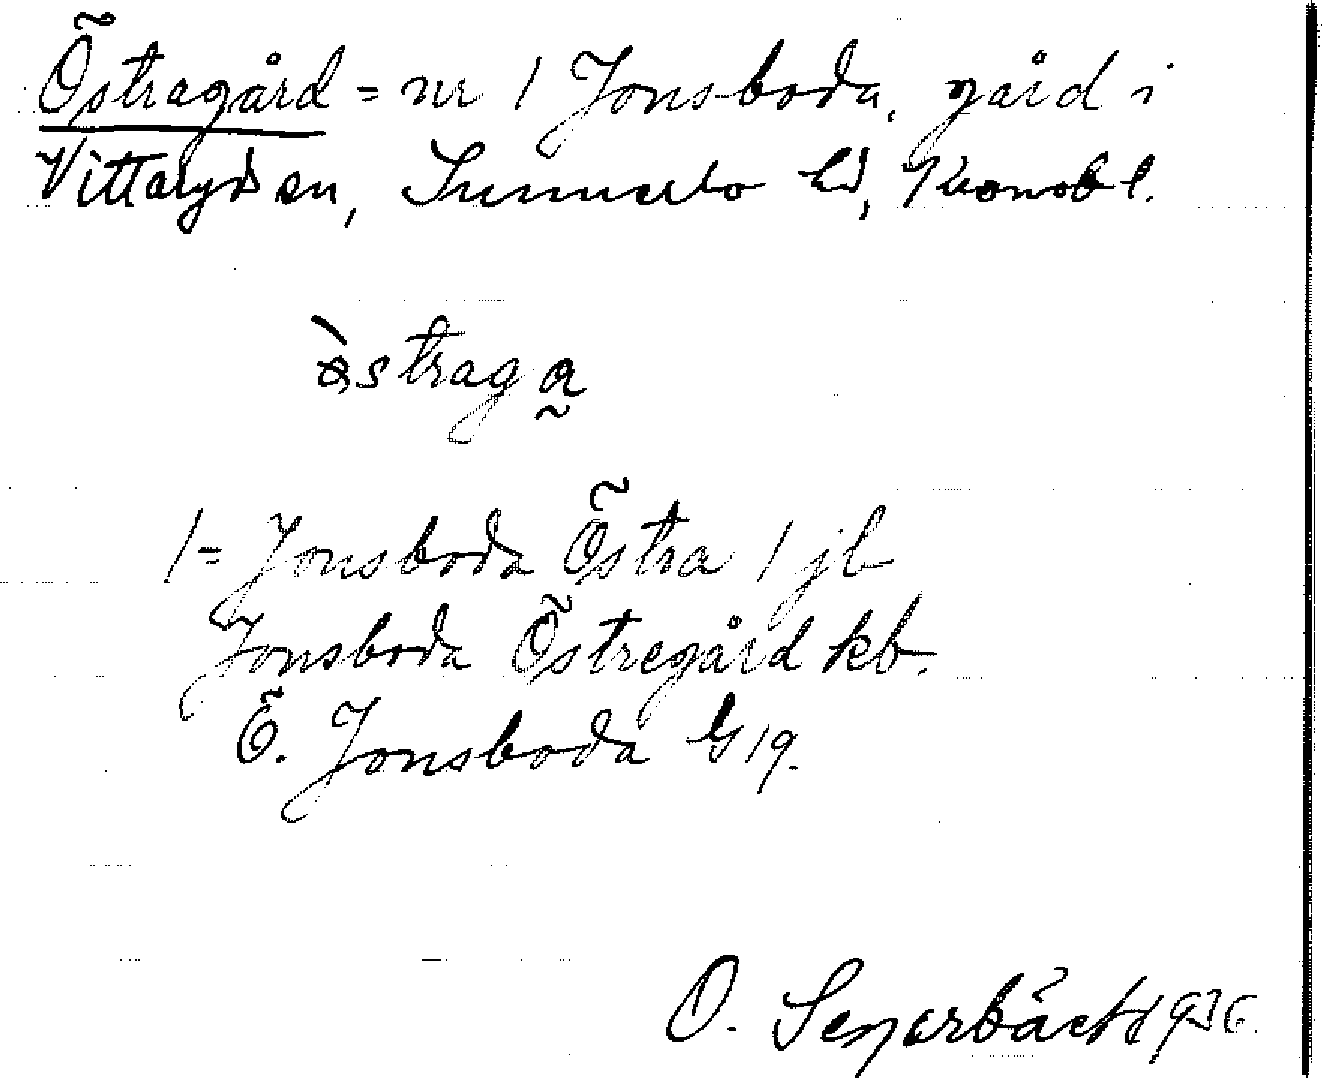 Östragård = nr 1 Jonsboda, gård i
Vittaryd sn, Sunnerbo hd, Kronob l.
östraga
1 = Jonsboda Östra 1 jb
Jonsboda Östregård kb.
Ö. Jonsboda G 19.
O. 1936.